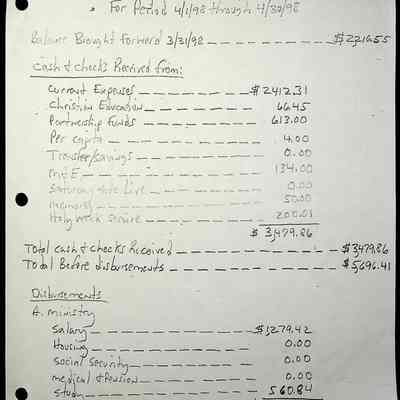 For Period 4/1/98 through 4/30/98
Balance Brought Forward 3/31/98 — $2,216.55
Cash & Checks Received from:
Current Expenses — $2412.31
Christian Education — 66.45
Partnership Funds — 613.00
Per Capita — 4.00
Transfer/Savings — 0.00
M&E — 134.00
Saturday Nite Live — 0.00
Memorials — 50.00
Holy Week Service — 200.01
$3,479.86
Total Cash & Checks Received — $3,479.86
Total Before disbursements — $5,696.41
Disbursements
A. Ministry
Salary — $1,279.42
Housing — 0.00
Social Security — 0.00
Medical & Pension — 0.00
Study — 560.84